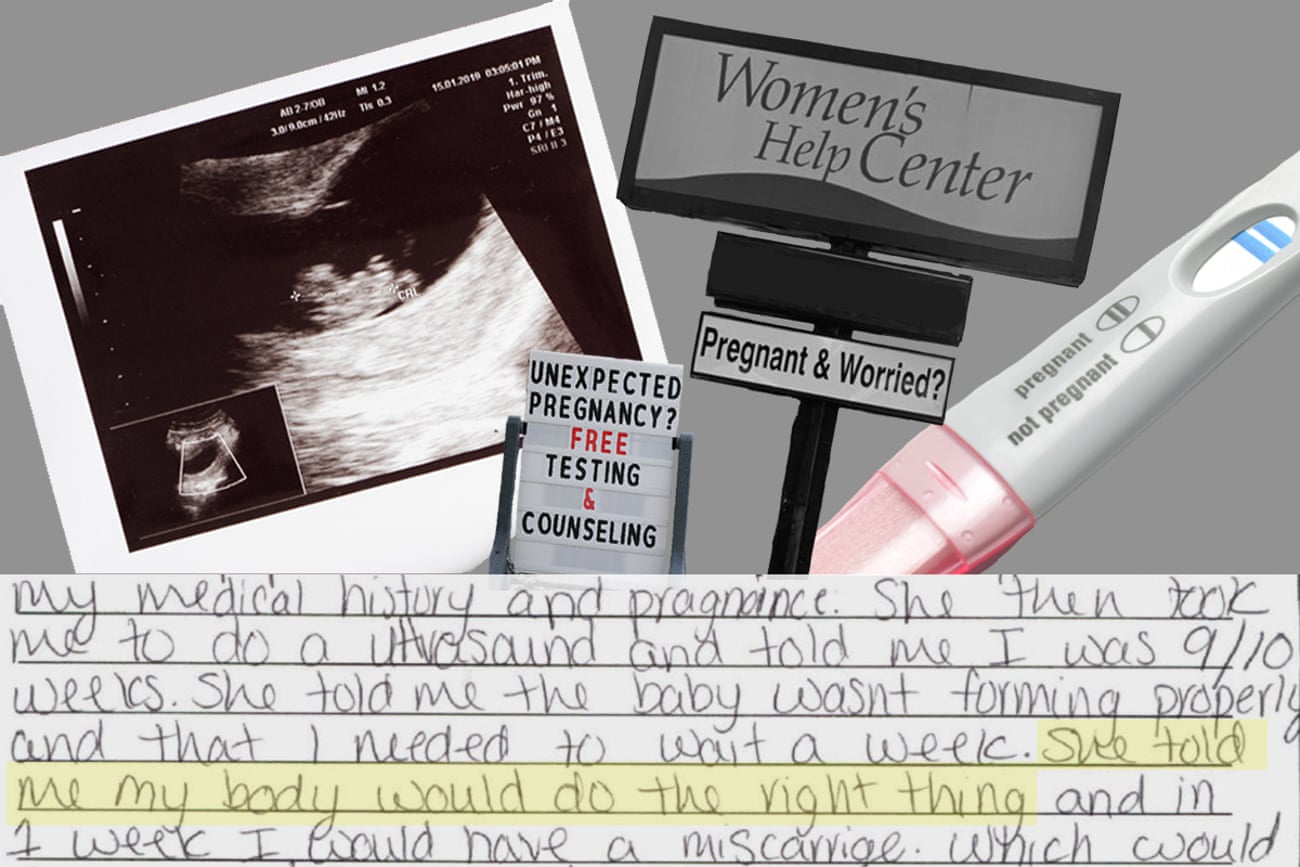 AB 2-7/OB MI 1.2 15.01.2019 03:05:01PM
3.0/9.0cm / 42Hz TIs 0.3 1. Trim.
Har-high
Pwr 97 %
Gn 1
C7 / M4
P4 / E3
SRI II 3
CRL
Women's
Help Center
Pregnant & Worried?
UNEXPECTED
PREGNANCY?
FREE
TESTING
&
COUNSELING
pregnant
not pregnant
my medical history and pragnance. She then took
me to do a ultrasaund and told me I was 9/10
weeks. She told me the baby wasnt forming properly
and that I needed to wait a week. She told
me my body would do the right thing and in
1 week I would have a miscarrige. Which would